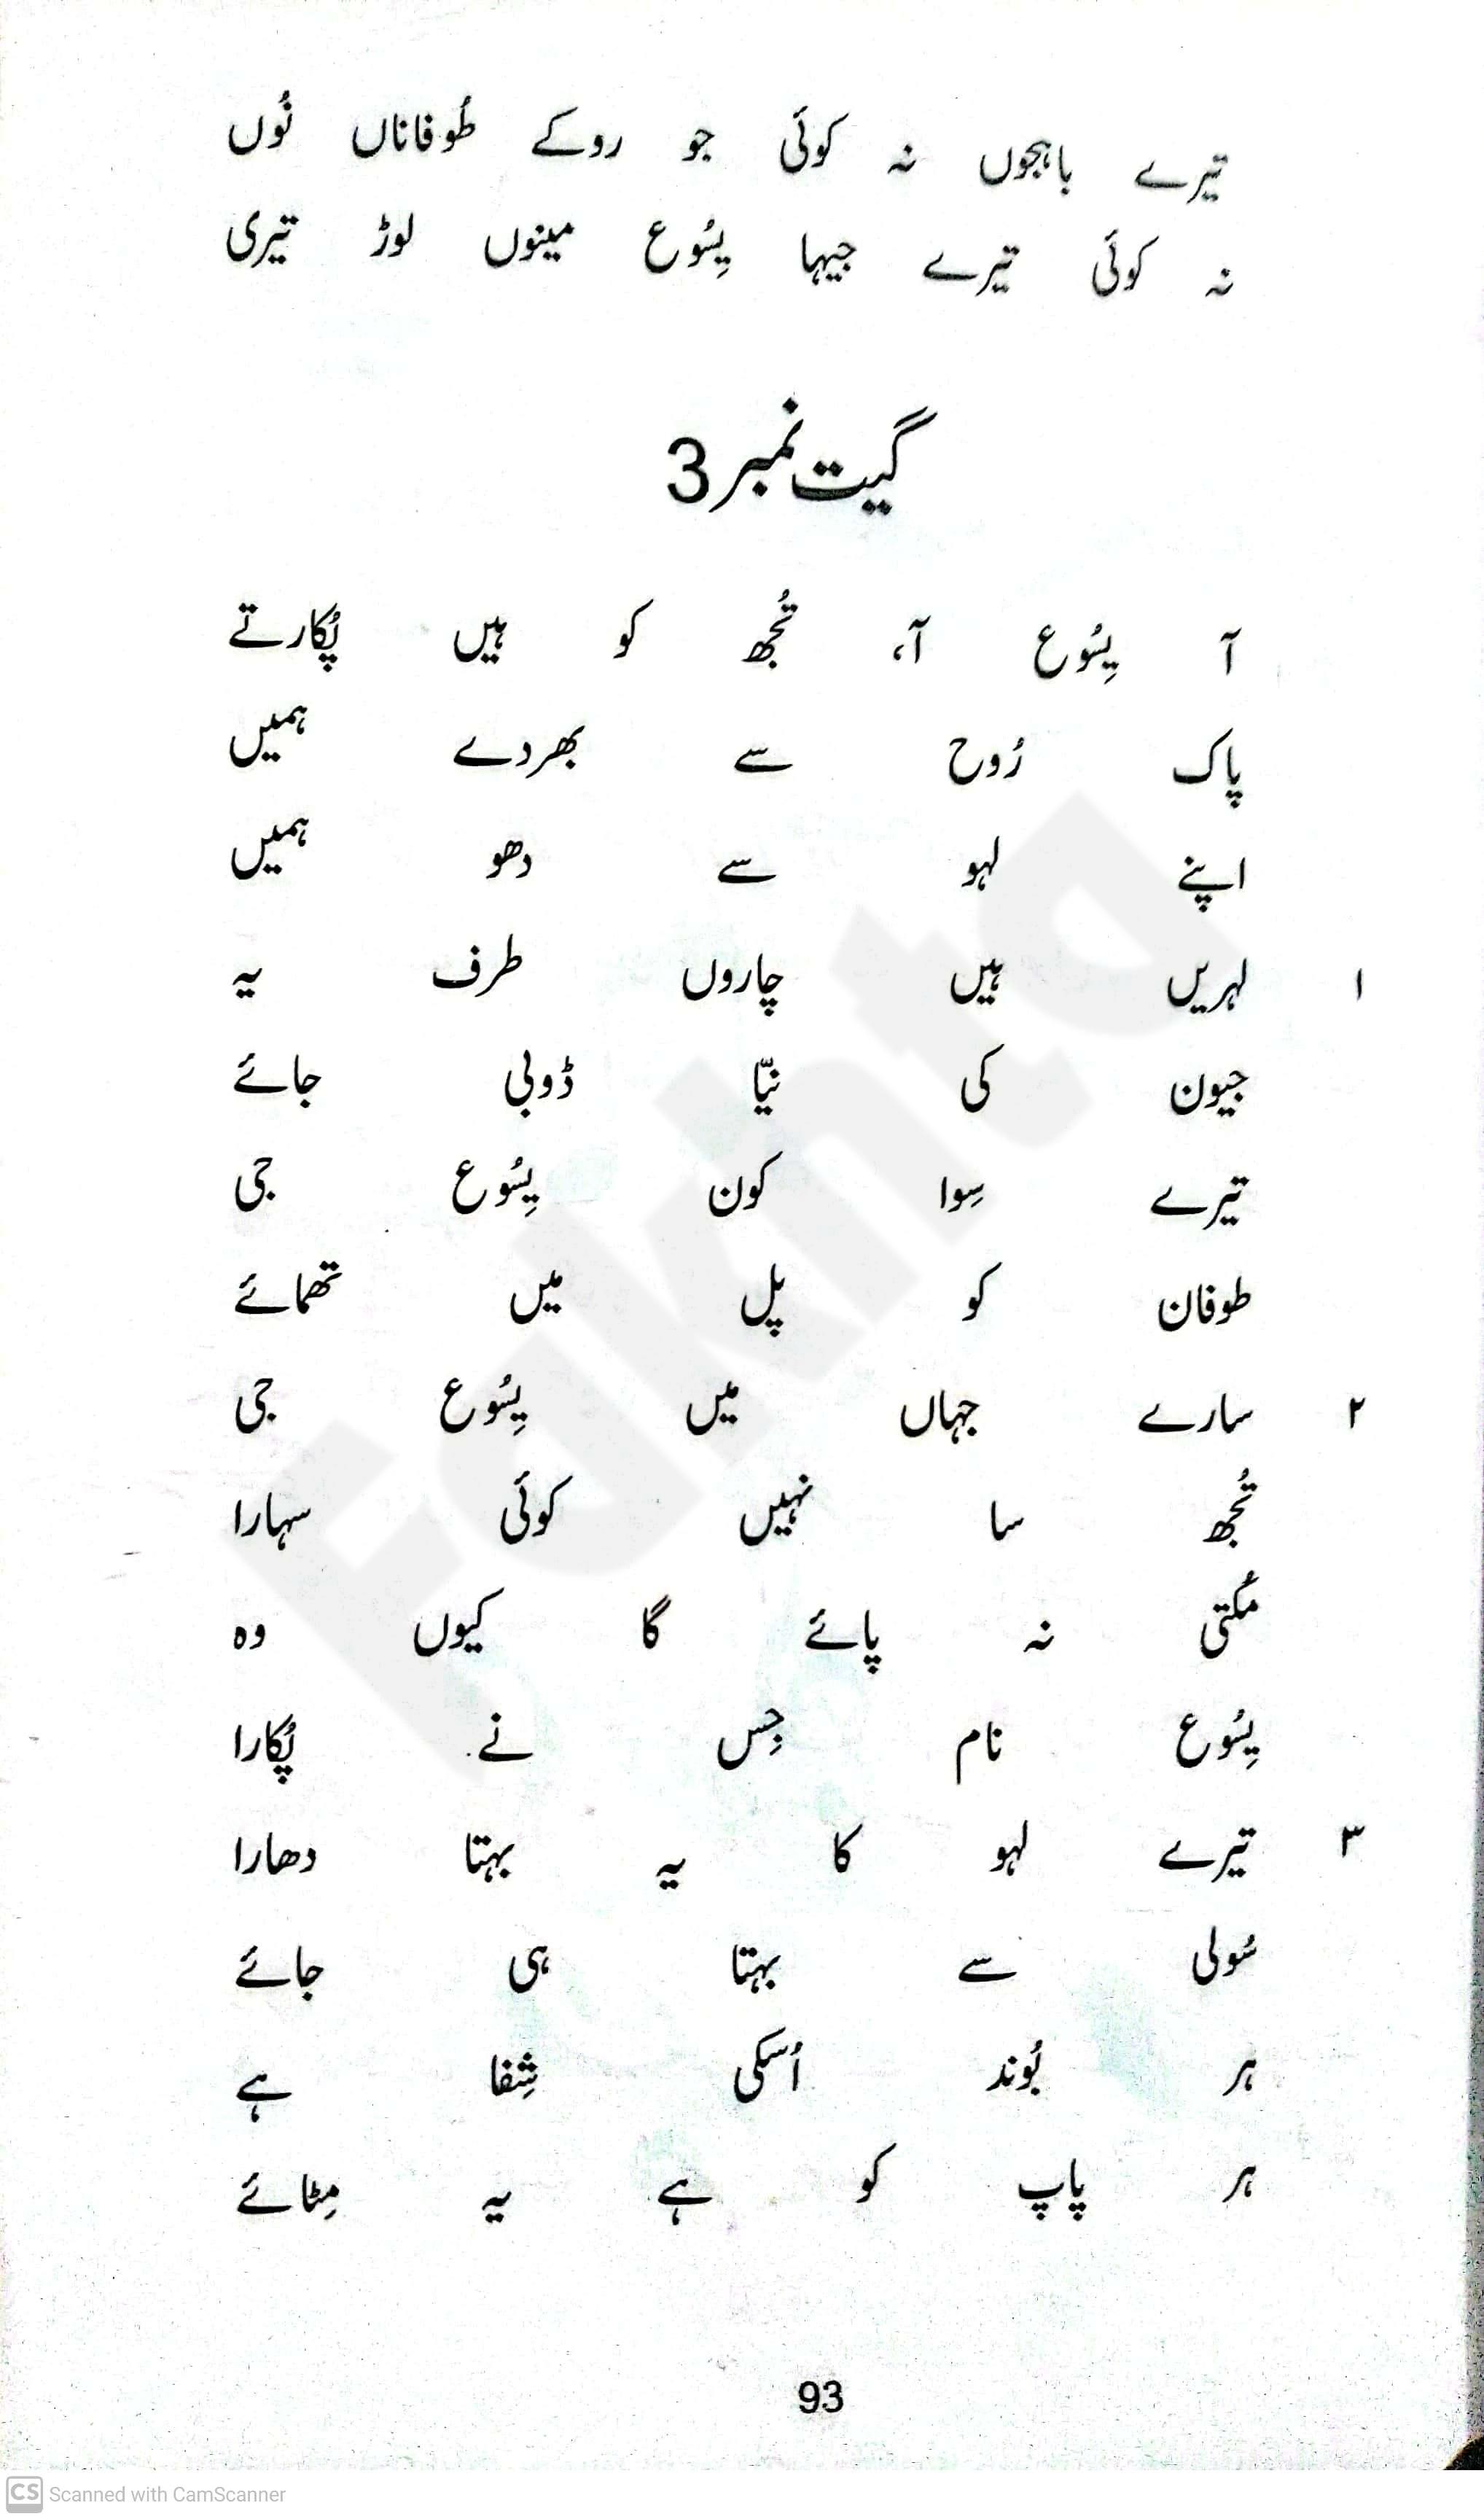 تیرے باہجوں نہ کوئی جو روکے طُوفاناں نُوں
نہ کوئی تیرے جیہا یِسُوع مینوں لوڑ تیری
گیت نمبر 3
آ یِسُوع آ، تُجھ کو ہیں پُکارتے
پاک رُوح سے بھردے ہمیں
اپنے لہو سے دھو ہمیں
۱ لہریں ہیں چاروں طرف یہ
جیون کی نیّا ڈوبی جائے
تیرے سِوا کون یِسُوع جی
طوفان کو پل میں تھمائے
۲ سارے جہاں میں یِسُوع جی
تُجھ سا نہیں کوئی سہارا
مُکتی نہ پائے گا کیوں وہ
یِسُوع نام جِس نے پُکارا
۳ تیرے لہو کا یہ بہتا دھارا
سُولی سے بہتا ہی جائے
ہر بُوند اُسکی شِفا ہے
ہر پاپ کو ہے یہ مِٹائے
93
Fakhta
CS Scanned with CamScanner